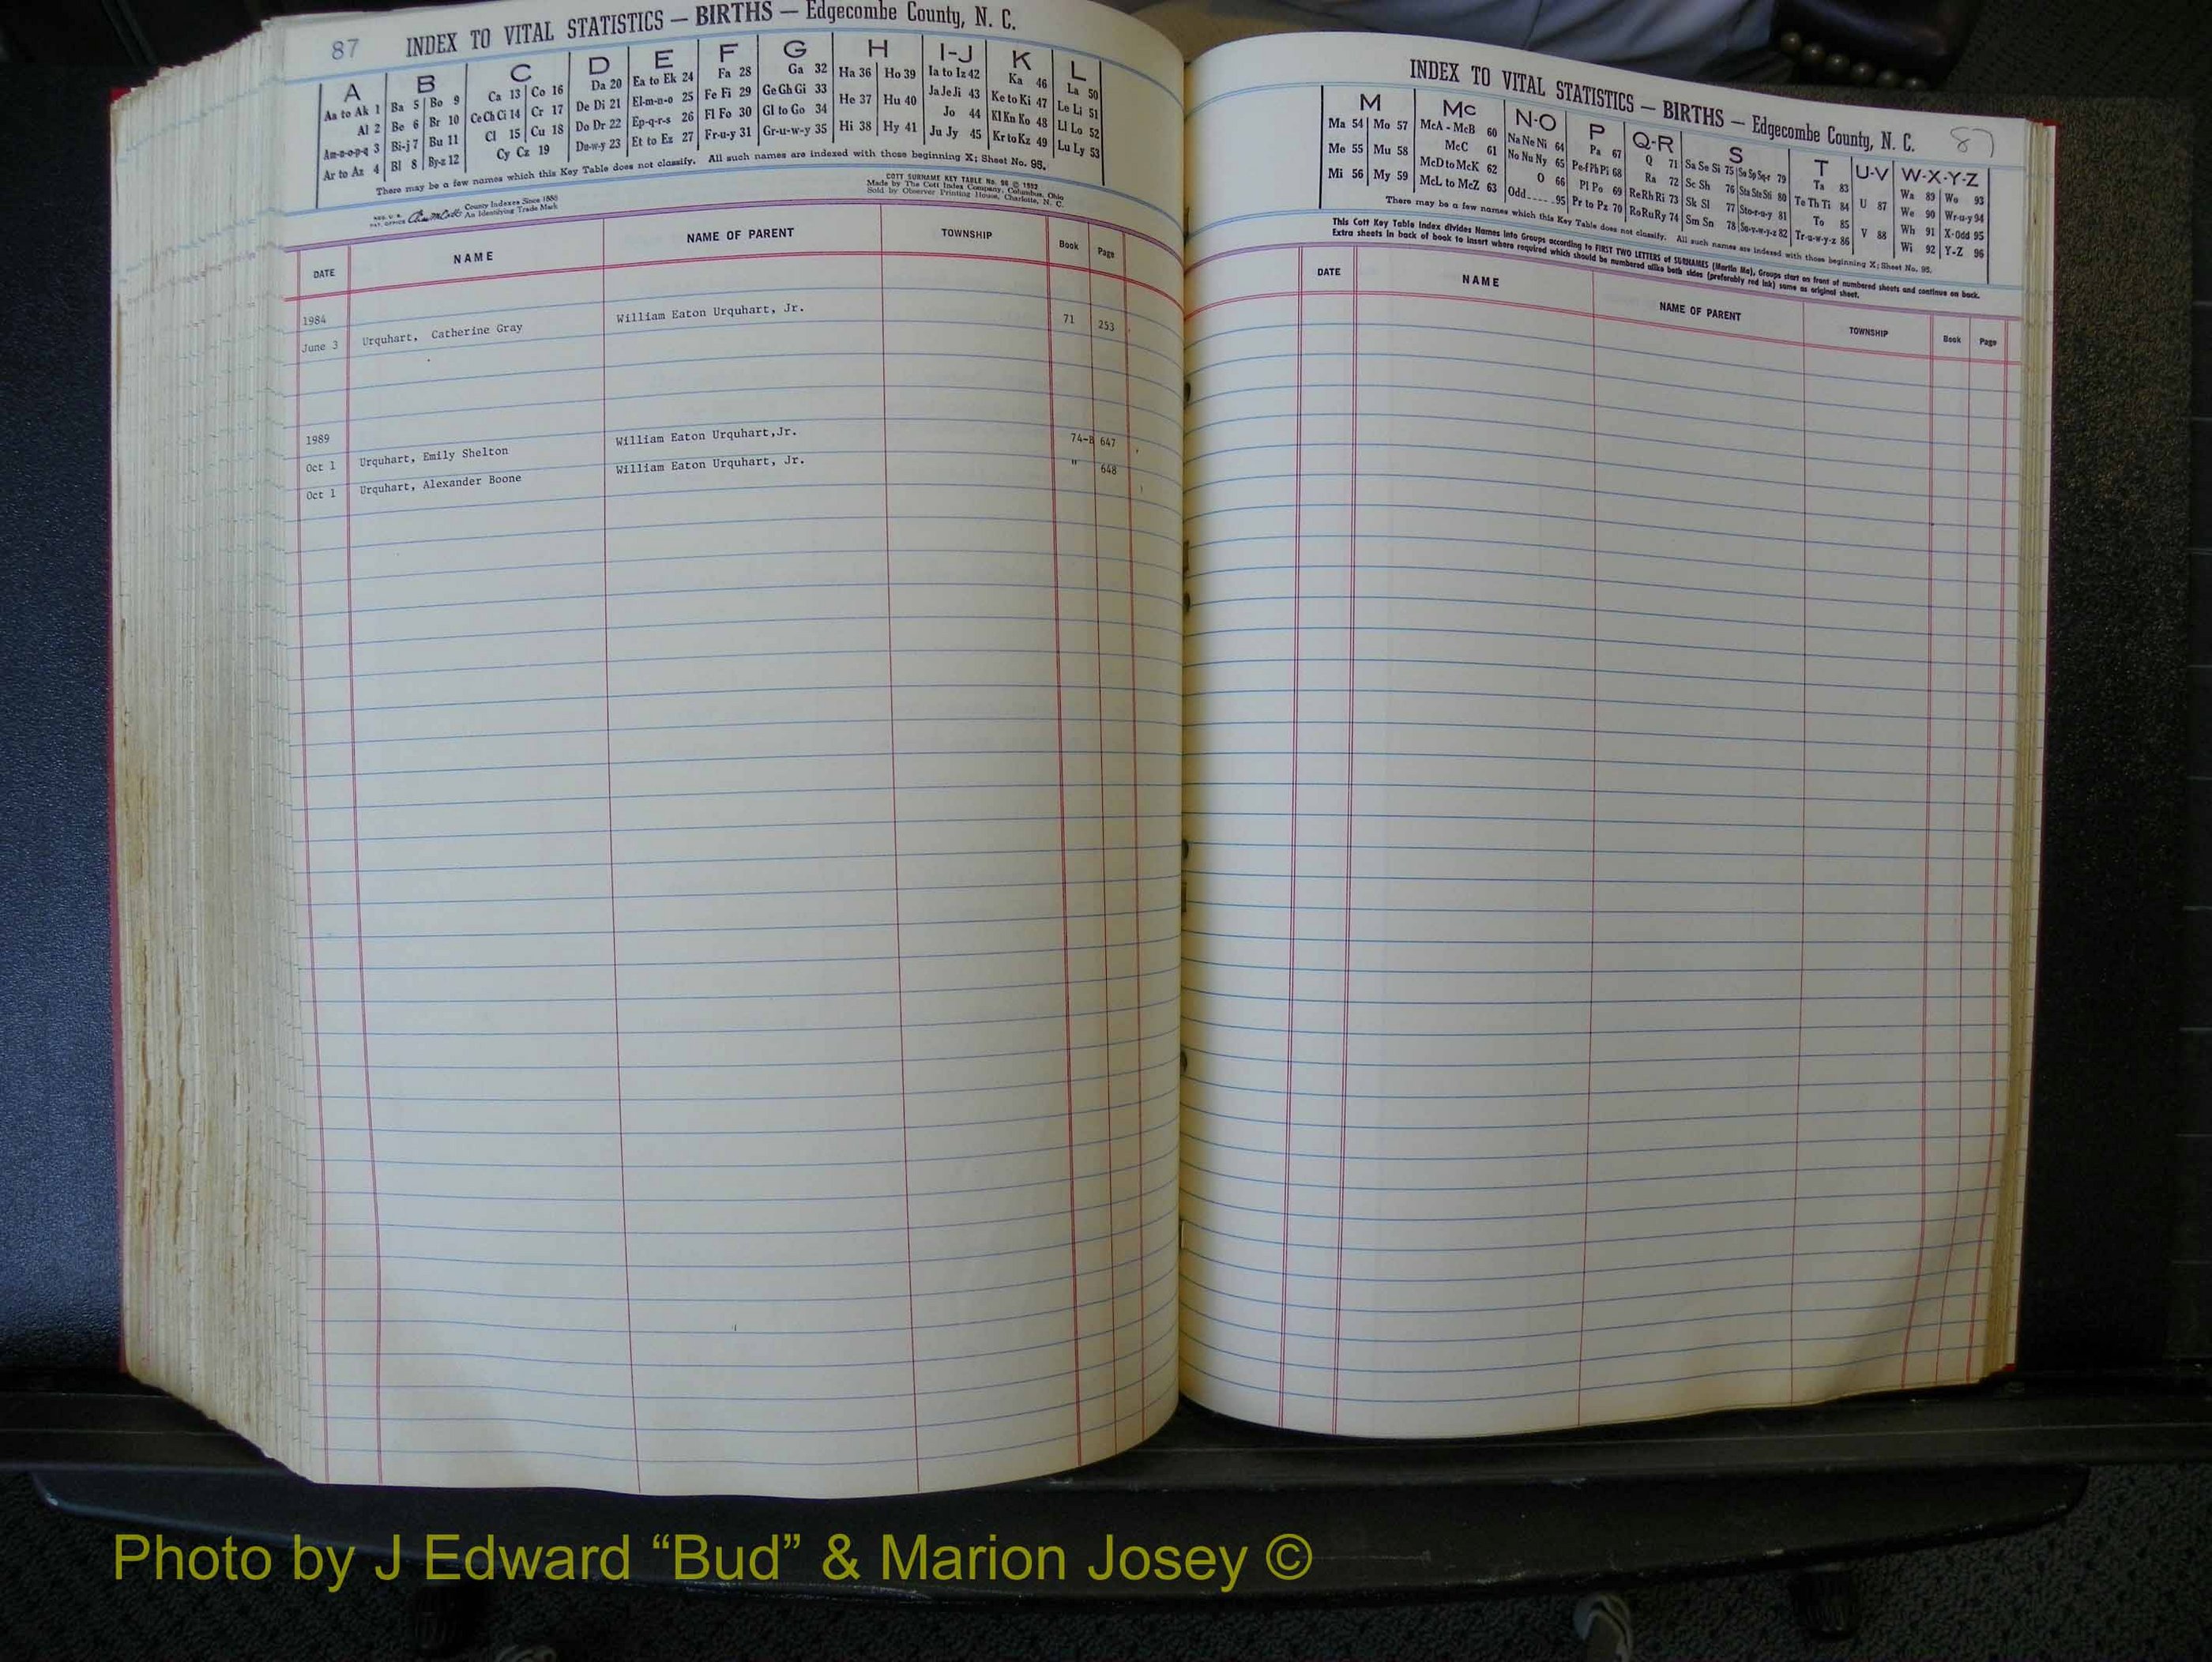 87 INDEX TO VITAL STATISTICS — BIRTHS — Edgecombe County, N. C.
A B C D E F G H I-J K L
Aa to Ak 1 Ba 5 Bo 9 Ca 13 Co 16 Da 20 Ea to Ek 24 Fa 28 Ga 32 Ha 36 Ho 39 Ia to Iz 42 Ka 46 La 50
Al 2 Be 6 Br 10 Ce Ch Ci 14 Cr 17 De Di 21 El-m-n-o 25 Fe Fi 29 Ge Gh Gi 33 He 37 Hu 40 Ja Je Ji 43 Ke to Ki 47 Le Li 51
Am-n-o-p-q 3 Bi-j 7 Bu 11 Cl 15 Cu 18 Do Dr 22 Ep-q-r-s 26 Fl Fo 30 Gl to Go 34 Hi 38 Hy 41 Jo 44 Kl Kn Ko 48 Ll Lo 52
Ar to Az 4 Bl 8 By-z 12 Cy Cz 19 Du-w-y 23 Et to Ez 27 Fr-u-y 31 Gr-u-w-y 35 Ju Jy 45 Kr to Kz 49 Lu Ly 53
There may be a few names which this Key Table does not classify. All such names are indexed with those beginning X; Sheet No. 95.
REG. U. S. PAT. OFFICE County Indexes Since 1888 An Identifying Trade Mark
COTT SURNAME KEY TABLE No. 96 © 1952
Made by The Cott Index Company, Columbus, Ohio
Sold by Observer Printing House, Charlotte, N. C.
DATE NAME NAME OF PARENT TOWNSHIP Book Page
1984
June 3 Urquhart, Catherine Gray William Eaton Urquhart, Jr. 71 253
1989
Oct 1 Urquhart, Emily Shelton William Eaton Urquhart,Jr. 74-B 647
Oct 1 Urquhart, Alexander Boone William Eaton Urquhart, Jr. " 648
INDEX TO VITAL STATISTICS — BIRTHS — Edgecombe County, N. C. 87
M Mc N-O P Q-R S T U-V W-X-Y-Z
Ma 54 Mo 57 McA - McB 60 Na Ne Ni 64 Pa 67 Q 71 Sa Se Si 75 So Sp Sq-r 79 Ta 83 U 87 Wa 89 Wo 93
Me 55 Mu 58 McC 61 No Nu Ny 65 Pe-f Ph Pi 68 Ra 72 Sc Sh 76 Sta Ste Sti 80 Te Th Ti 84 V 88 We 90 Wr-u-y 94
Mi 56 My 59 McD to McK 62 O 66 Pl Po 69 Re Rh Ri 73 Sk Sl 77 Sto-r-u-y 81 To 85 Wh 91 X-Odd 95
McL to McZ 63 Odd 95 Pr to Pz 70 Ro Ru Ry 74 Sm Sn 78 Su-v-w-y-z 82 Tr-u-w-y-z 86 Wi 92 Y-Z 96
There may be a few names which this Key Table does not classify. All such names are indexed with those beginning X; Sheet No. 95.
This Cott Key Table Index divides Names into Groups according to FIRST TWO LETTERS of SURNAMES (Martin Ma), Groups start on front of numbered sheets and continue on back.
Extra sheets in back of book to insert where required which should be numbered alike both sides (preferably red ink) same as original sheet.
DATE NAME NAME OF PARENT TOWNSHIP Book Page
Photo by J Edward “Bud” & Marion Josey ©